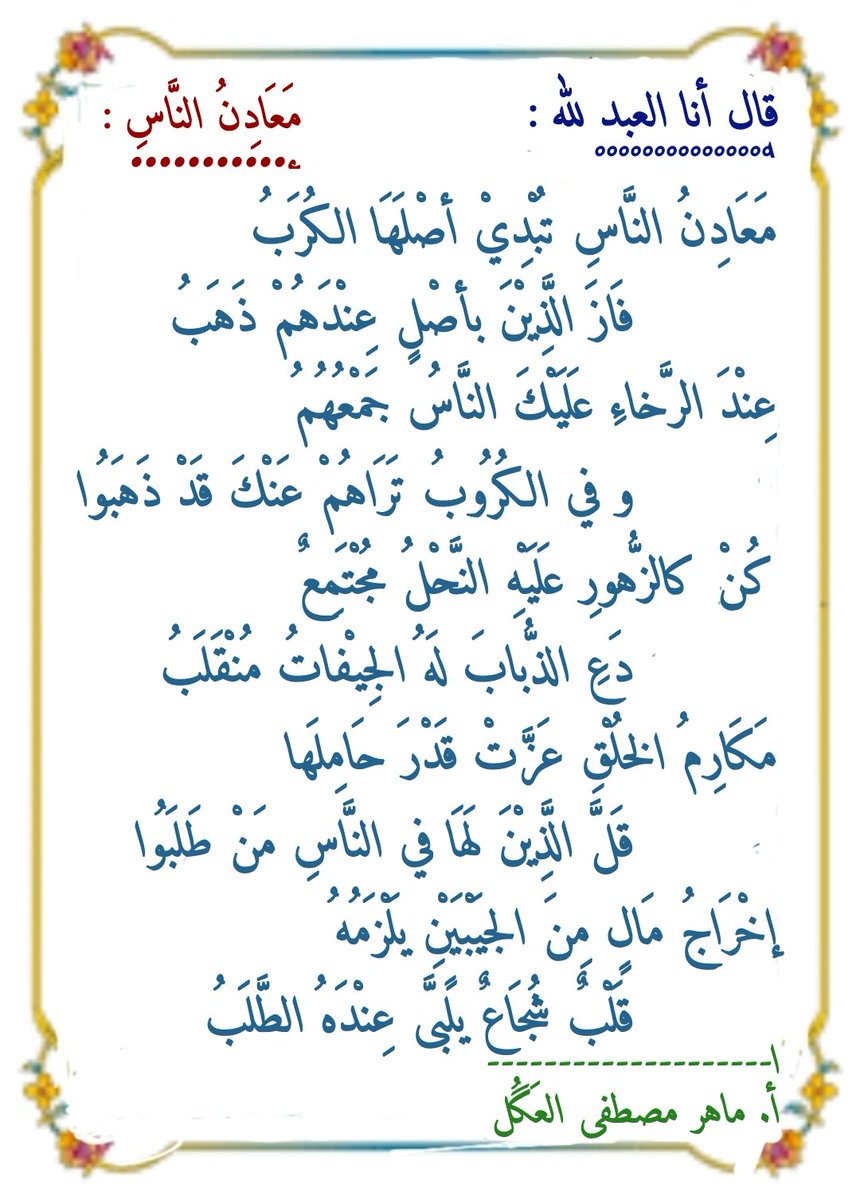 قال أنا العبد لله :
مَعَادِنُ النَّاسِ :
مَعَادِنُ النَّاسِ تُبْدِيْ أصْلَهَا الكُرَبُ
فَازَ الَّذِيْنَ بأصْلٍ عِنْدَهُمْ ذَهَبُ
عِنْدَ الرَّخاءِ عَلَيْكَ النَّاسُ جَمْعُهُمُ
و في الكُرُوبُ تَرَاهُمْ عَنْكَ قَدْ ذَهَبُوا
كُنْ كالزُّهورِ عَلَيْهِ النَّحْلُ مُجْتَمِعٌ
دَعِ الذُّبابَ لَهُ الجِيْفاتُ مُنْقَلَبُ
مَكَارِمُ الخُلْقِ عَزَّتْ قَدْرَ حَامِلِهَا
قَلَّ الَّذِيْنَ لَهَا في النَّاسِ مَنْ طَلَبُوا
إخْرَاجُ مَالٍ مِنَ الجَيْبَيْنِ يَلْزَمُهُ
قَلْبٌ شُجَاعٌ يُلَبىَّ عِنْدَهُ الطَّلَبُ
أ. ماهر مصطفى العَكَُّل